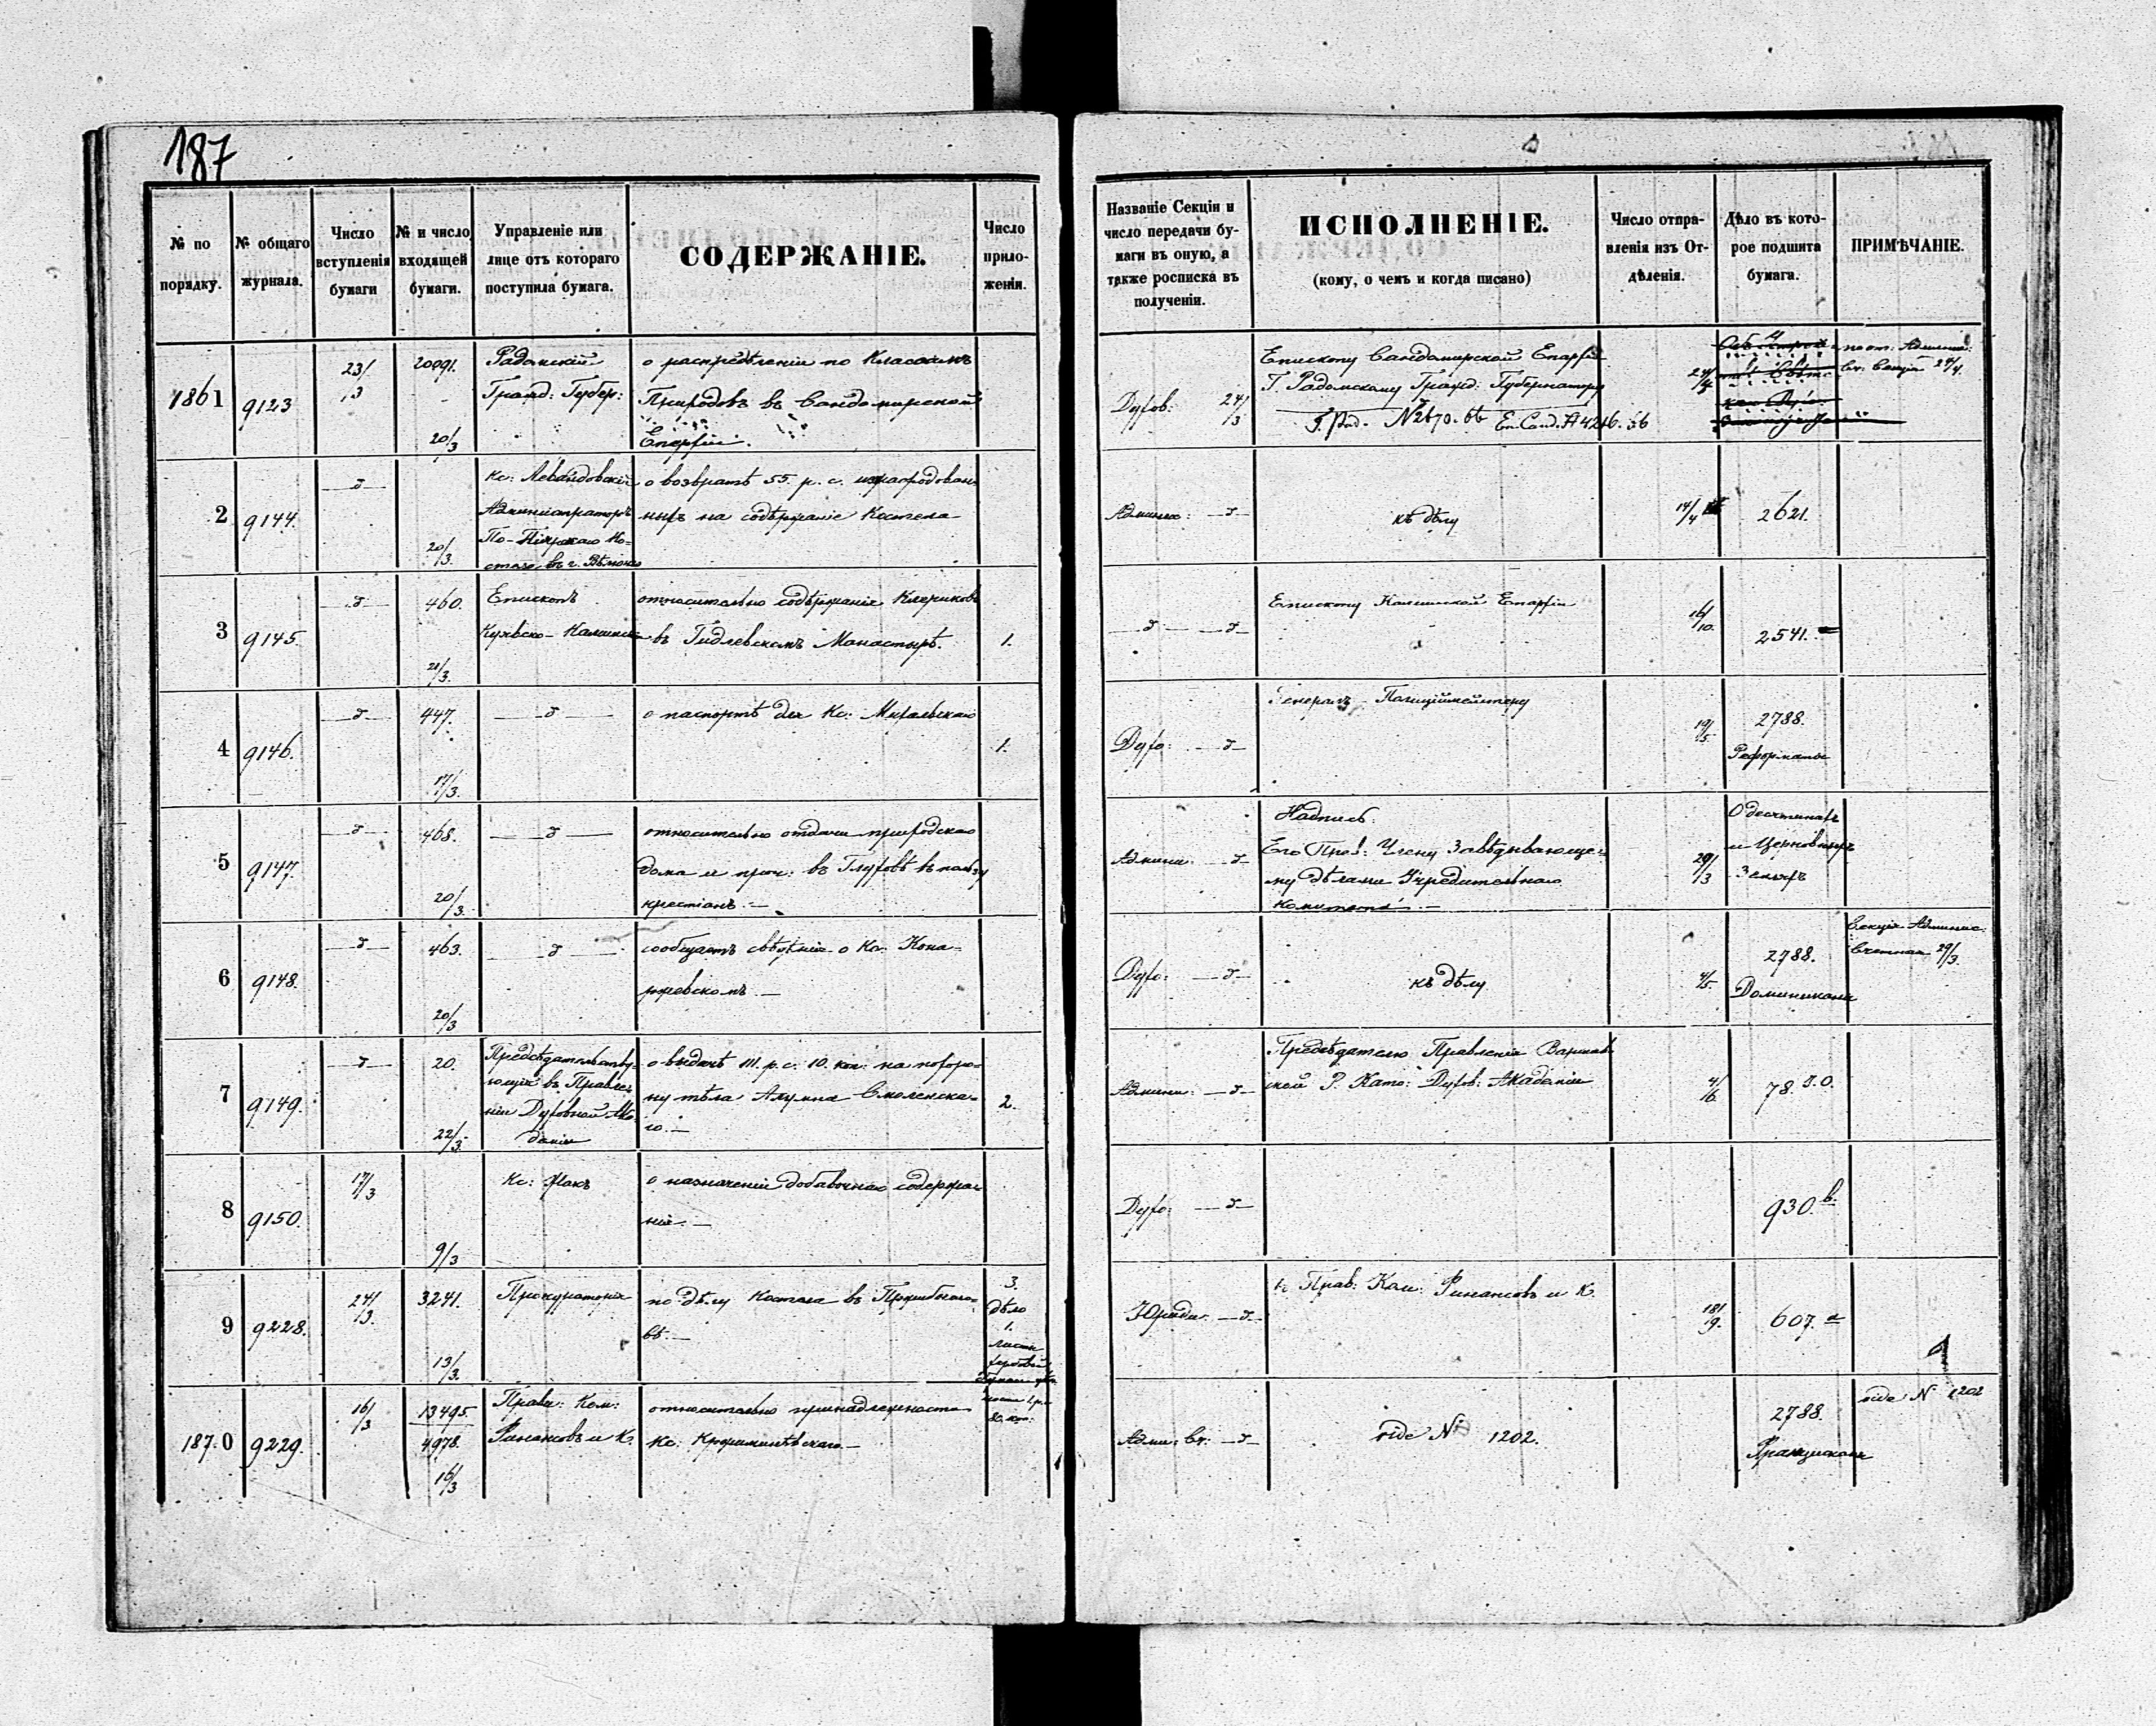 187
№ по порядку.
№ общаго журнала.
Число вступленія бумаги
№ и число входящей бумаги.
Управленіе или лице отъ котораго поступила бумага.
СОДЕРЖАНІЕ.
Число приложенія.
Названіе Секціи и число передачи бумаги въ оную, а также росписка въ полученіи.
ИСПОЛНЕНІЕ.
(кому, о чемъ и когда писано)
Число отправленія изъ Отдѣленія.
Дѣло въ которое подшита бумага.
ПРИМѢЧАНІЕ.
1861
9123
23/3
20091.
20/3
Радомскій
Гражд: Губер:
о распредѣленіи по Классамъ
Приходовъ въ Сандомирской
Епархіи.
Духов: 24/3
Епископу Сандомирской Епархіи
Г. Радомскому Гражд: Губернатору
24/4
2
9144.
20/3.
Кс: Левандовскій
Администраторъ
о возвратѣ 55 р. с. израсходован-
ныхъ на содержаніе Костела
Админ:
къ дѣлу
14/4
2621.
3
9145.
460.
21/3.
Епископъ
Куявско-Калишск
относительно содержанія Клериковъ
въ Гидлевскомъ Монастырѣ.
1.
Епископу Калишской Епархіи
16/10.
2541.
4
9146.
447.
17/3.
о паспортѣ для Кс:
1.
Духо:
Генералъ-Полиціймейстеру
19/5.
2788.
Реформаты
5
9147.
468.
20/3.
относительно отдачи приходскаго
дома и проч: въ Глуховѣ въ пользу
крестьянъ.—
Админи:
Надпись.
Его Прев: Члену Завѣдывающе-
му дѣлами Учредительнаго
Комитета.—
29/3
О десятинахъ
и Церковныхъ
Земляхъ
6
9148.
463.
20/3
сообщаетъ свѣдѣнія о Кс: Кона-
ржевскомъ.—
Духо:
къ дѣлу
4/5.
2788.
Доминикане
Секція Админис:
29/3.
7
9149.
20.
22/3.
Предсѣдательству-
ющій въ Правле-
ніи Духовной Ака-
деміи
о выдачѣ 111. р. с. 10. коп: на похоро-
ны тѣла Алумна Смоленска-
го.—
2.
Админи:
Предсѣдателю Правленія Варшав-
ской Р. Като: Духов: Академіи
4/6.
78.
8
9150.
17/3
9/3
о назначеніи добавочнаго содержа-
нія.—
Духо:
930.
9
9228.
24/3.
3241.
13/3.
Прокураторія
по дѣлу Костела въ
3.
дѣло
1.
Юриди:
Прав: Ком: Финансовъ и К.
18/9.
607. а
187.0
9229.
16/3
13495.
4978.
16/3
Правит: Ком:
Финансовъ и К.
относительно принадлежности
Кс:
80. коп:
Адми: Сч:
vide № 1202.
2788.
Францискане
vide N 1202